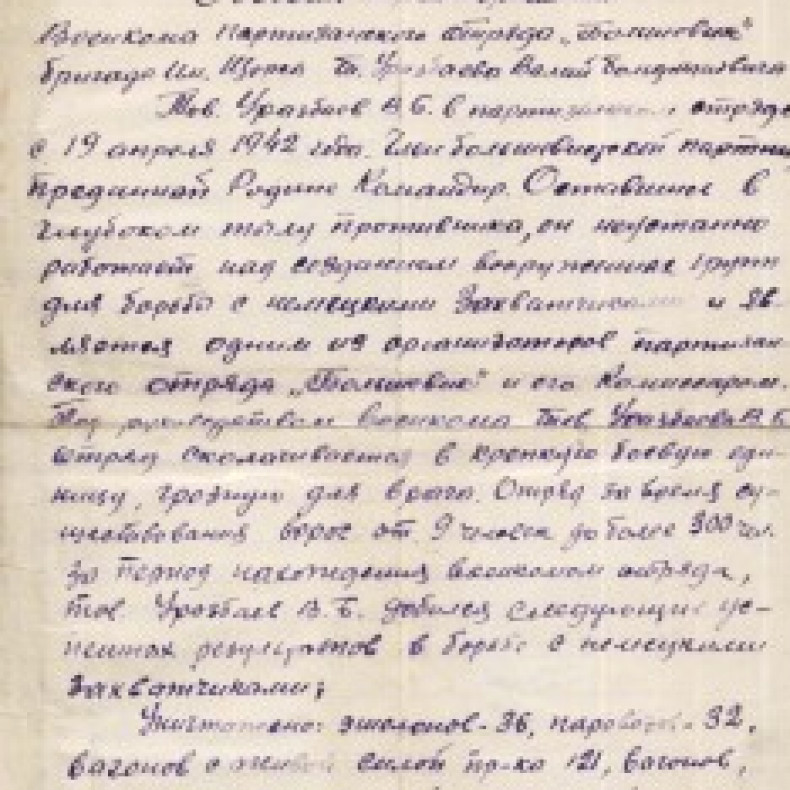 Военкома Партизанского отряда „Большевик"
бригады им. Щорса Т. Уразбаева Валий
Тов. Уразбаев В.Б. в партизанском отряде
с 19 апреля 1942 года. Член большевистской партии
преданный Родине Командир. Оставшись в
глубоком тылу противника, он неустанно
работает над созданием вооруженных групп
для борьбы с немецкими Захватчиками и яв-
ляется одним из организаторов партизан-
ского отряда „Большевик" и его Комиссаром.
Под руководством Военкома тов. Уразбаева В.Б.
отряд сколачивается в крепкую боевую еди-
ницу, грозную для врага. Отряд за время су-
ществования вырос от 9 человек до более 300 чел.
За период нахождения военкомом отряда,
тов. Уразбаев В.Б. добился следующих ус-
пешных результатов в борьбе с немецкими
Захватчиками;
Уничтожено: эшелонов - 36, паровозов - 32,
вагонов с живой силой пр-ка 121, вагонов,